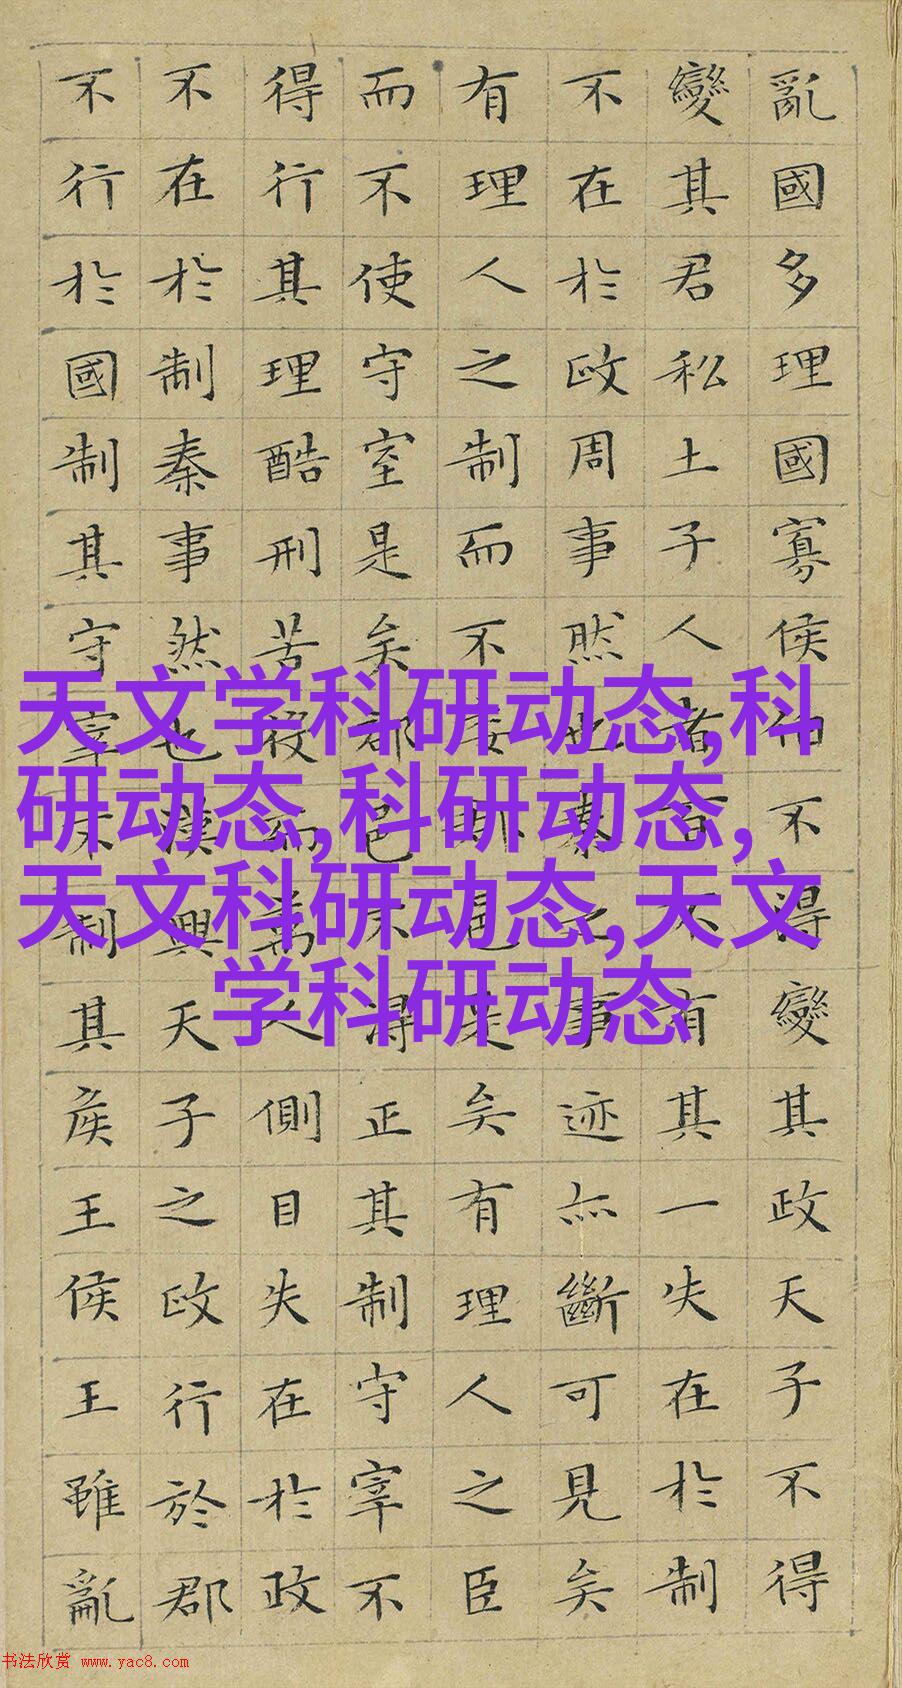 亂國多理國寡侯伯不得變其政天子不得
變其君私土子人者百不有其一失在於制
不在於政周事然也秦之事迹亦斷可見矣
有理人之制而不委郡邑是矣有理人之臣
而不使守宰是矣郡邑不得正其制守宰不
得行其理酷刑苦役而萬人側目失在於政
不在於制秦事然也漢興天子之政行於郡
不行於國制其守宰不制其侯王侯王雖亂
天文学科研动态,科
研动态,科研动态,
天文科研动态,天文
学科研动态
书法欣赏 www.yac8.com